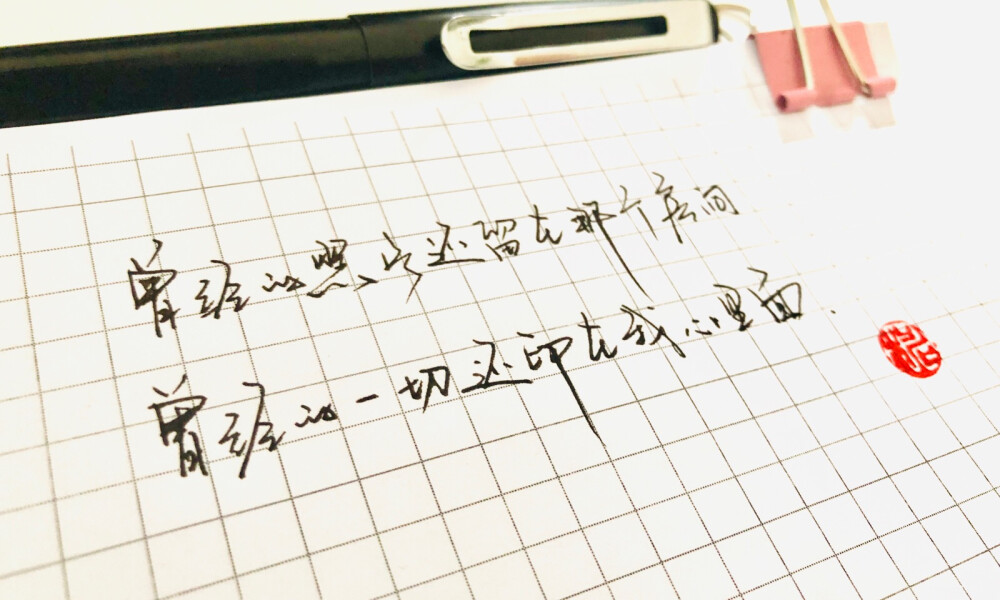 曾经的照片还留在那个房间
曾经的一切还印在我心里面.